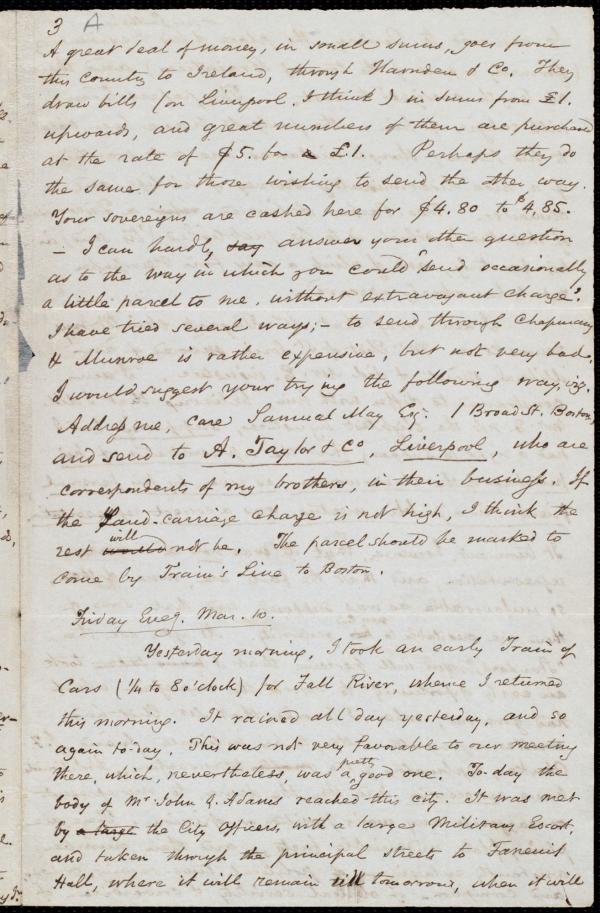 3 A
A great deal of money, in small sums, goes from
this country to Ireland, through Harnden & Co. They
draw bills (on Liverpool, I think) in sums from £1.
upwards, and great numbers of them are purchased
at the rate of $5. for a £1. Perhaps they do
the same for those wishing to send the other way.
Your sovereigns are cashed here for $4.80 to $4.85.
– I can hardly say answer your other question
as to the way in which you could send occasionally
a little parcel to me, without extravagant charge.
I have tried several ways; – to send through Chapman
& Munroe is rather expensive, but not very bad.
I would suggest your trying the following way, viz.
Address me, care Samuel May Esq. 1 Broad St. Boston,
and send to A. Taylor & Co, Liverpool, who are
correspondents of my brothers, in their business. If
the Land-carriage charge is not high, I think the
rest would will not be. The parcel should be marked to
come by Train's Line to Boston.
Friday Eveg. Mar. 10.
Yesterday morning, I took an early Train of
Cars (¼ to 8 o'clock) for Fall River, whence I returned
this morning. It rained all day yesterday, and so
again to-day. This was not very favorable to our meeting
there, which, nevertheless, was a pretty good one. To-day the
body of Mr John Q. Adams reached this city. It was met
by a large the City Officers, with a large Military Escort,
and taken through the principal streets to Faneuil
Hall, where it will remain till tomorrow, when it will